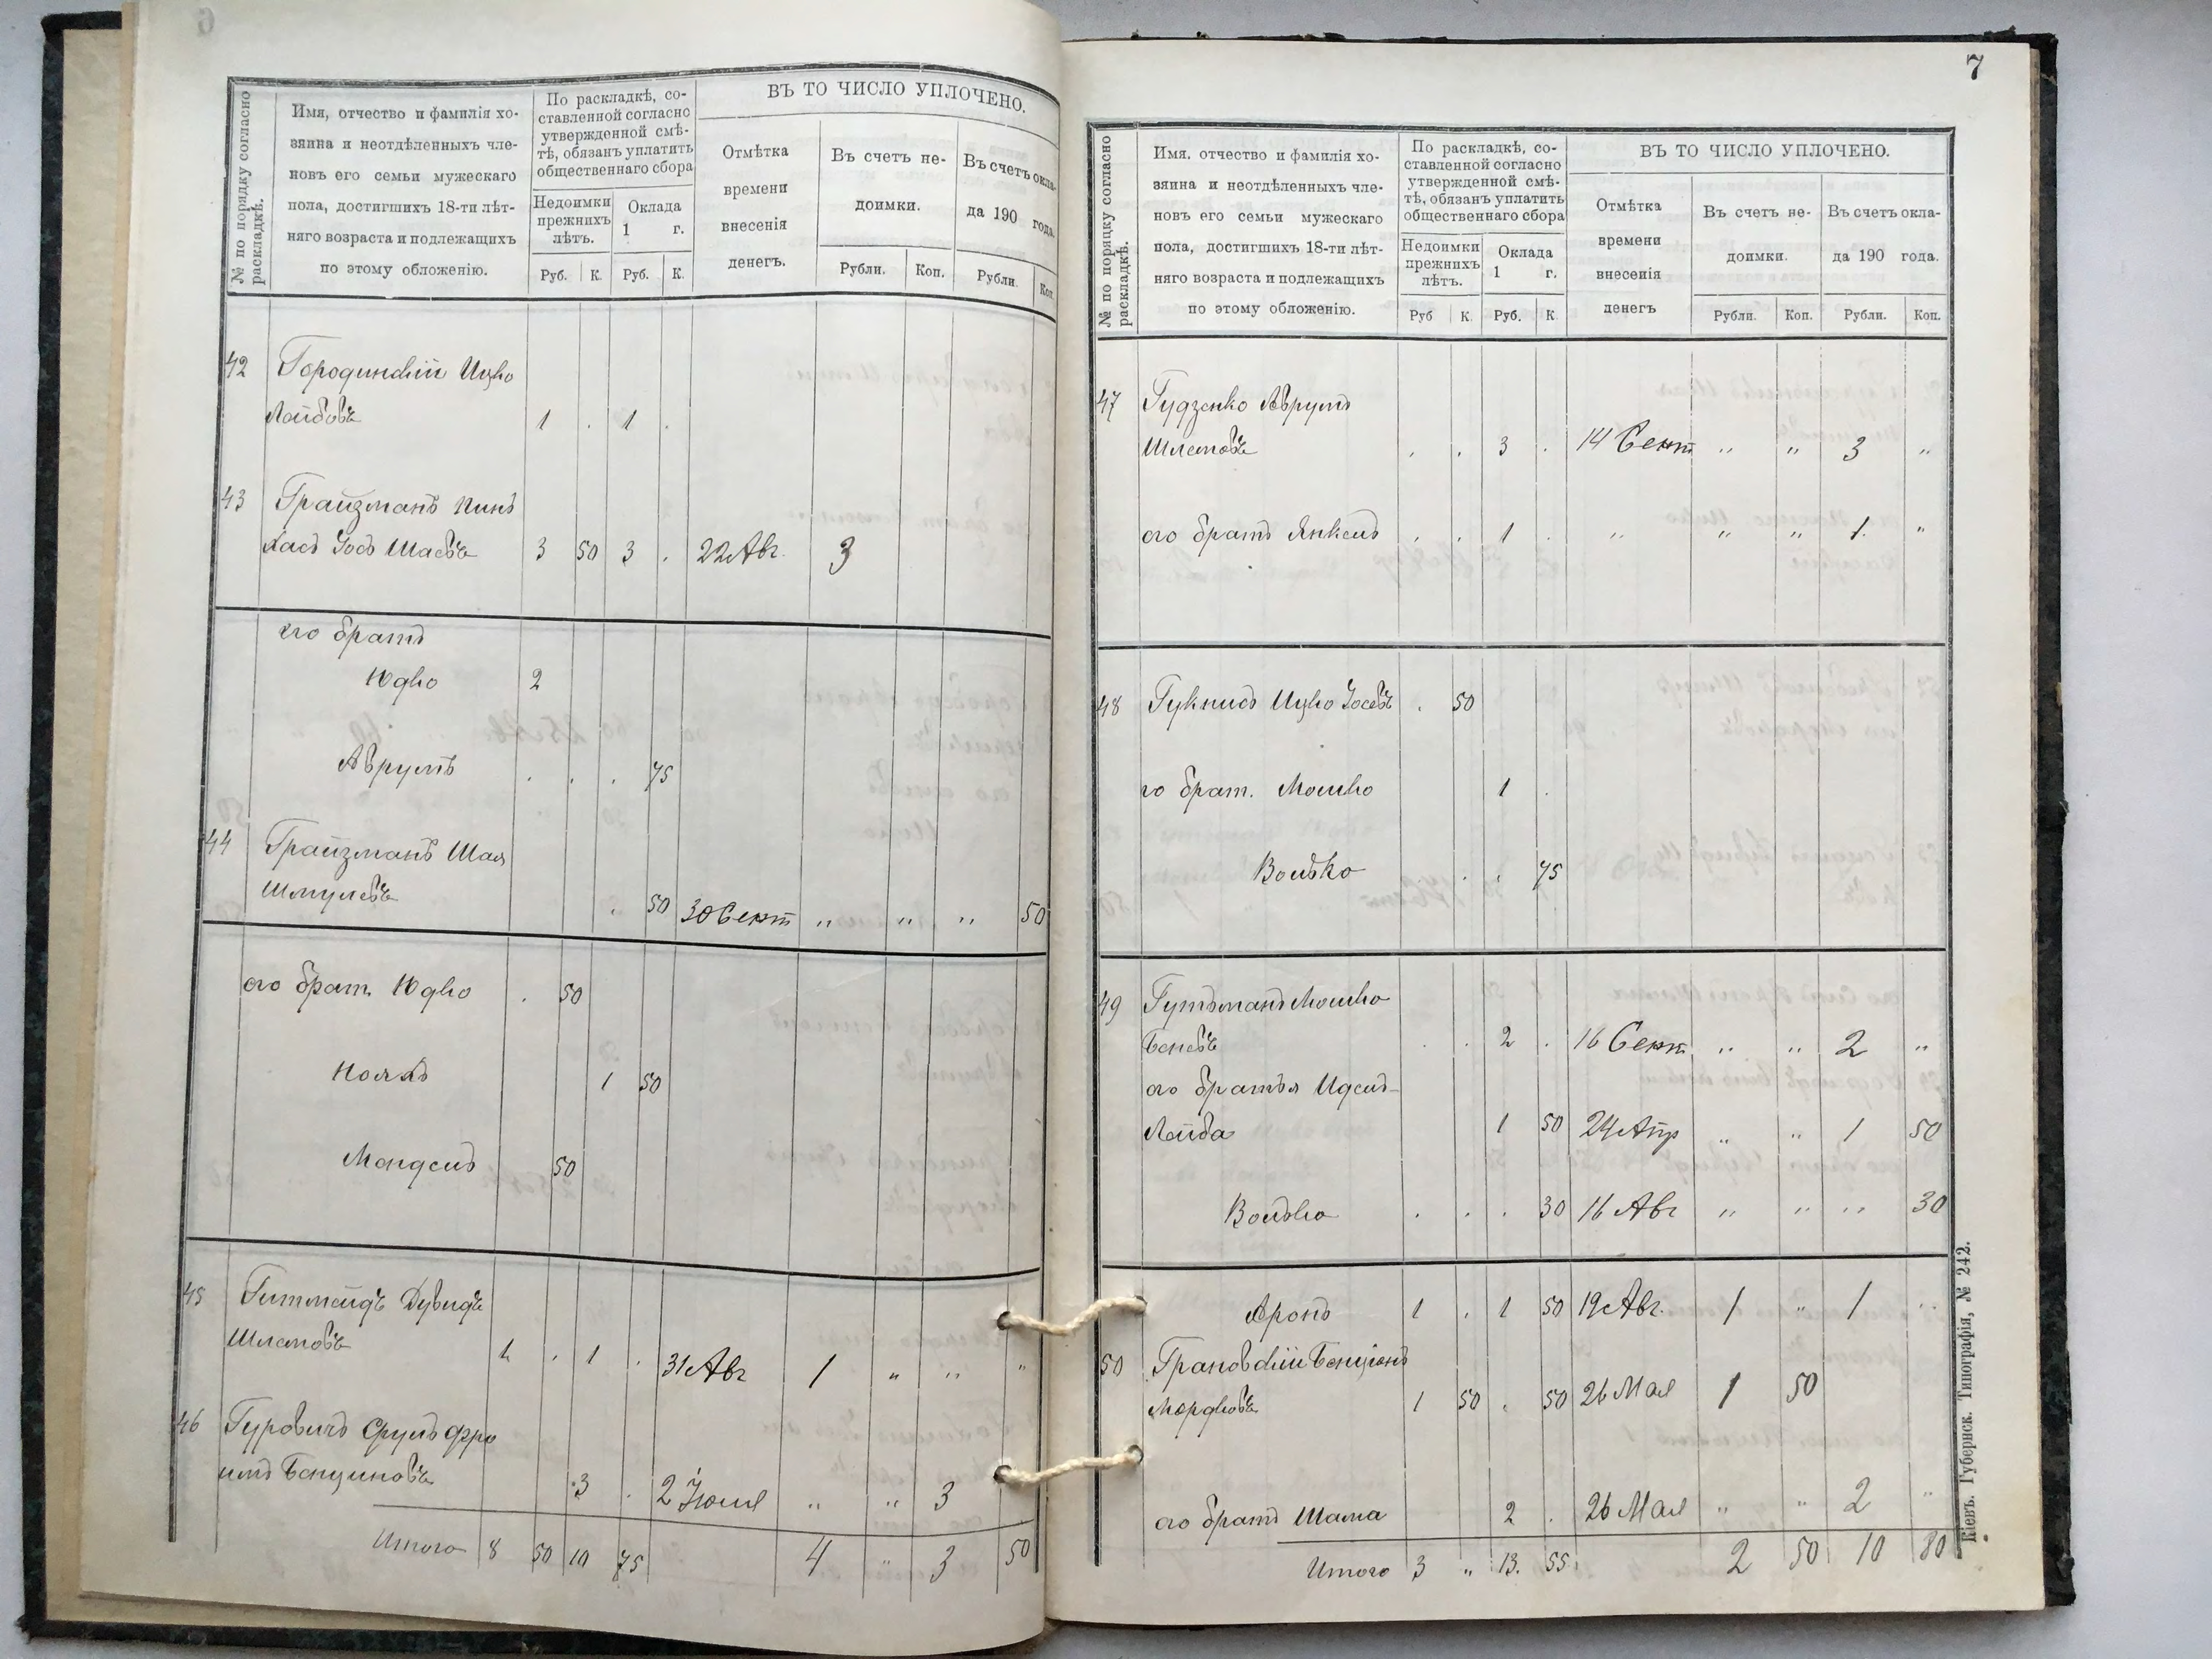 ВЪ ТО ЧИСЛО УПЛОЧЕНО.
№ по порядку согласно раскладкѣ.
Имя, отчество и фамилія хо-
зяина и неотдѣленныхъ чле-
новъ его семьи мужескаго
пола, достигшихъ 18-ти лѣт-
няго возраста и подлежащихъ
по этому обложенію.
По раскладкѣ, со-
ставленной согласно
утвержденной смѣ-
тѣ, обязанъ уплатить
общественнаго сбора
Недоимки
прежнихъ
лѣтъ.
Оклада
1 г.
Отмѣтка
времени
внесенія
денегъ.
Въ счетъ не-
доимки.
Въ счетъ окла-
да 190 года.
Руб. К. Руб. К. Рубли. Коп. Рубли. Коп.
42 Городинскій Ицко
Лейбовъ 1 . 1 .
43 Грайзманъ Пинъ
хасъ Іосъ Шаевъ 3 50 3 . 22 Авг. 3
его братъ
Юдко 2
Аврумъ . . . 75
44 Грайзманъ Шая
Шмулевъ . 50 30 Сент " " " 50
его брат. Юдко . 50
1 50
Мендель 50
45 Гитмейдъ Дувидъ
Шлемовъ 1 . 1 . 31 Авг 1 " " "
46 Гуровичъ Сруль Фро
имъ Бенционовъ 3 . 2 Іюля " " 3
Итого 8 50 10 75 4 " 3 50
7
ВЪ ТО ЧИСЛО УПЛОЧЕНО.
№ по порядку согласно раскладкѣ.
Имя, отчество и фамилія хо-
зяина и неотдѣленныхъ чле-
новъ его семьи мужескаго
пола, достигшихъ 18-ти лѣт-
няго возраста и подлежащихъ
по этому обложенію.
По раскладкѣ, со-
ставленной согласно
утвержденной смѣ-
тѣ, обязанъ уплатить
общественнаго сбора
Недоимки
прежнихъ
лѣтъ.
Оклада
1 г.
Отмѣтка
времени
внесенія
денегъ
Въ счетъ не-
доимки.
Въ счетъ окла-
да 190 года.
Руб К. Руб. К Рубли. Коп. Рубли. Коп.
47 Гудзенко Аврумъ
Шлемовъ . . 3 . 14 Сент " " 3 "
его братъ Янкель . . 1 . " " " 1. "
48 Гукнисъ Ицко Іосевъ . 50
го брат. Мошко 1 .
Волько . . 75
49 Гутьманъ Мошко
Беневъ . . 2 . 16 Сент " " 2 "
его братья Идель-
Лейба 1 50 24 Апр " " 1 50
Волько . . . 30 16 Авг " " " 30
Аронъ 1 . 1 50 19 Авг. 1 " 1 "
50 Грановскій Бенціонъ
Мордковъ 1 50 . 50 26 Мая 1 50
его братъ Шама 2 . 26 Мая " " 2 "
Итого 3 " 13. 55 2 50 10 80
Кіевъ. Губернск. Типографія, № 242.